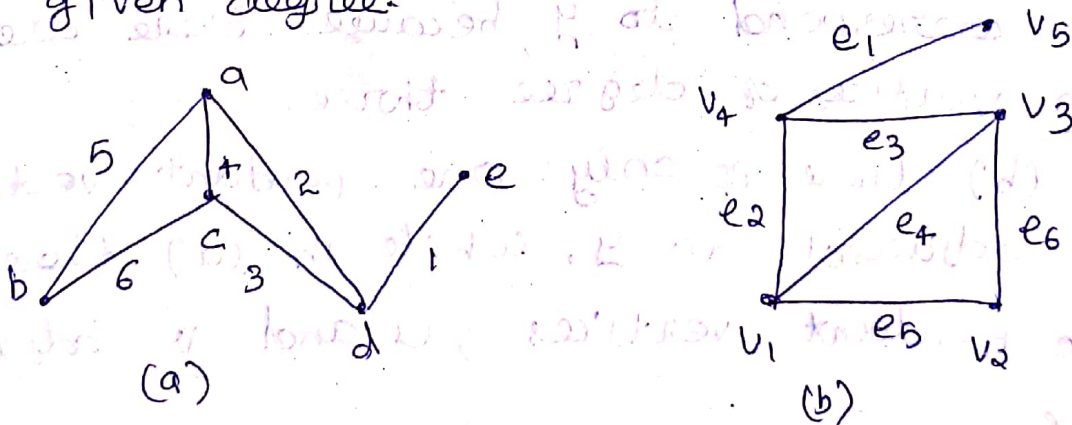 given degree.
a
5
4
2
e
c
b
6
3
1
d
(a)
e1
v5
v4
v3
e3
e2
e4
e6
v1
e5
v2
(b)